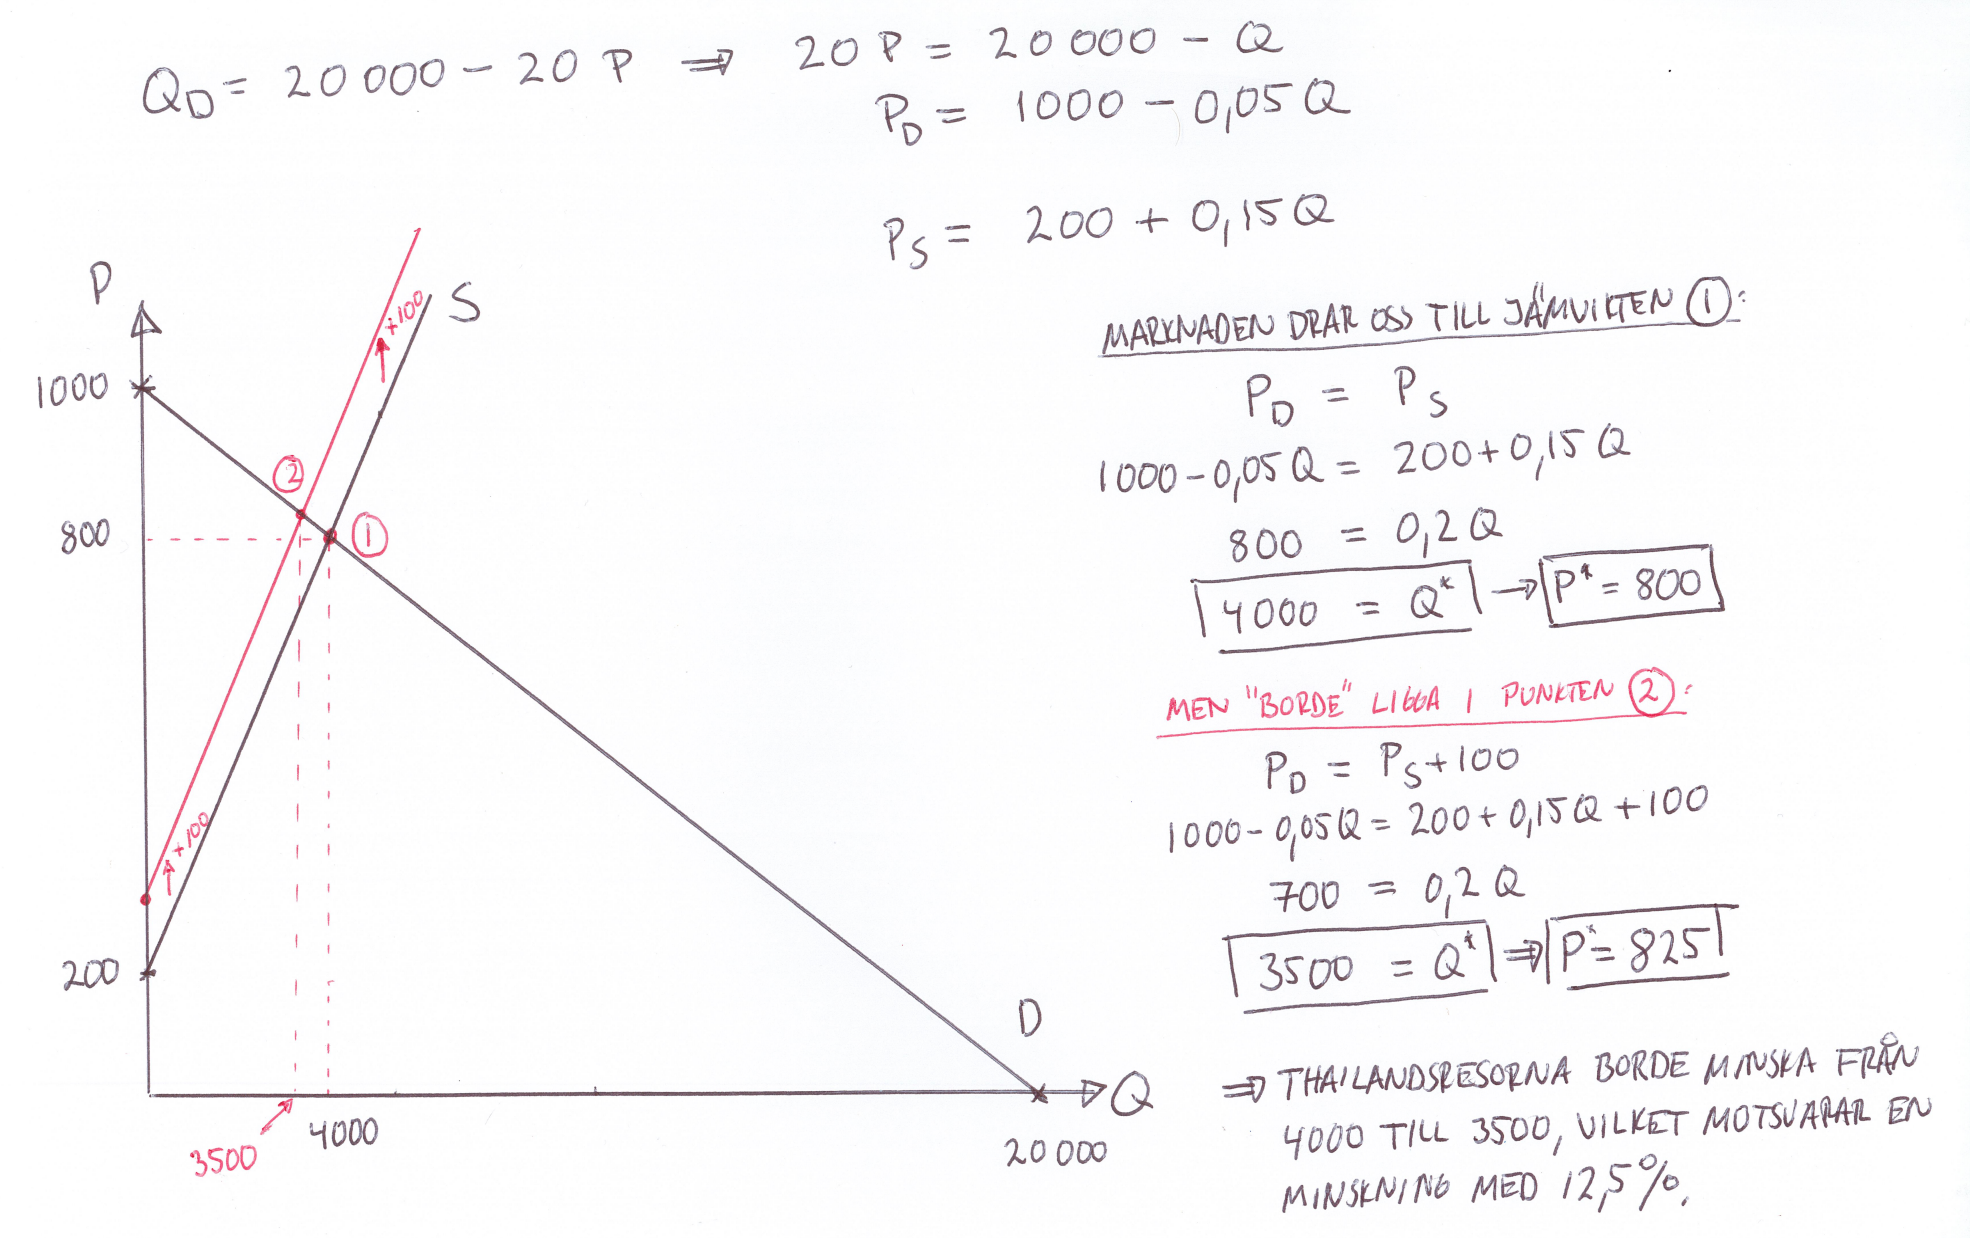 Q_D = 20 000 - 20 P ⇒ 20 P = 20 000 - Q
P_D = 1000 - 0,05 Q
P_S = 200 + 0,15 Q
P
S
+100
1000
②
800
①
+100
200
D
Q
3500
4000
20 000
MARKNADEN DRAR OSS TILL JÄMVIKTEN ①:
P_D = P_S
1000 - 0,05 Q = 200 + 0,15 Q
800 = 0,2 Q
4000 = Q* → P* = 800
MEN "BORDE" LIGGA I PUNKTEN ②:
P_D = P_S + 100
1000 - 0,05 Q = 200 + 0,15 Q + 100
700 = 0,2 Q
3500 = Q* ⇒ P* = 825
⇒ THAILANDSRESORNA BORDE MINSKA FRÅN
4000 TILL 3500, VILKET MOTSVARAR EN
MINSKNING MED 12,5%.